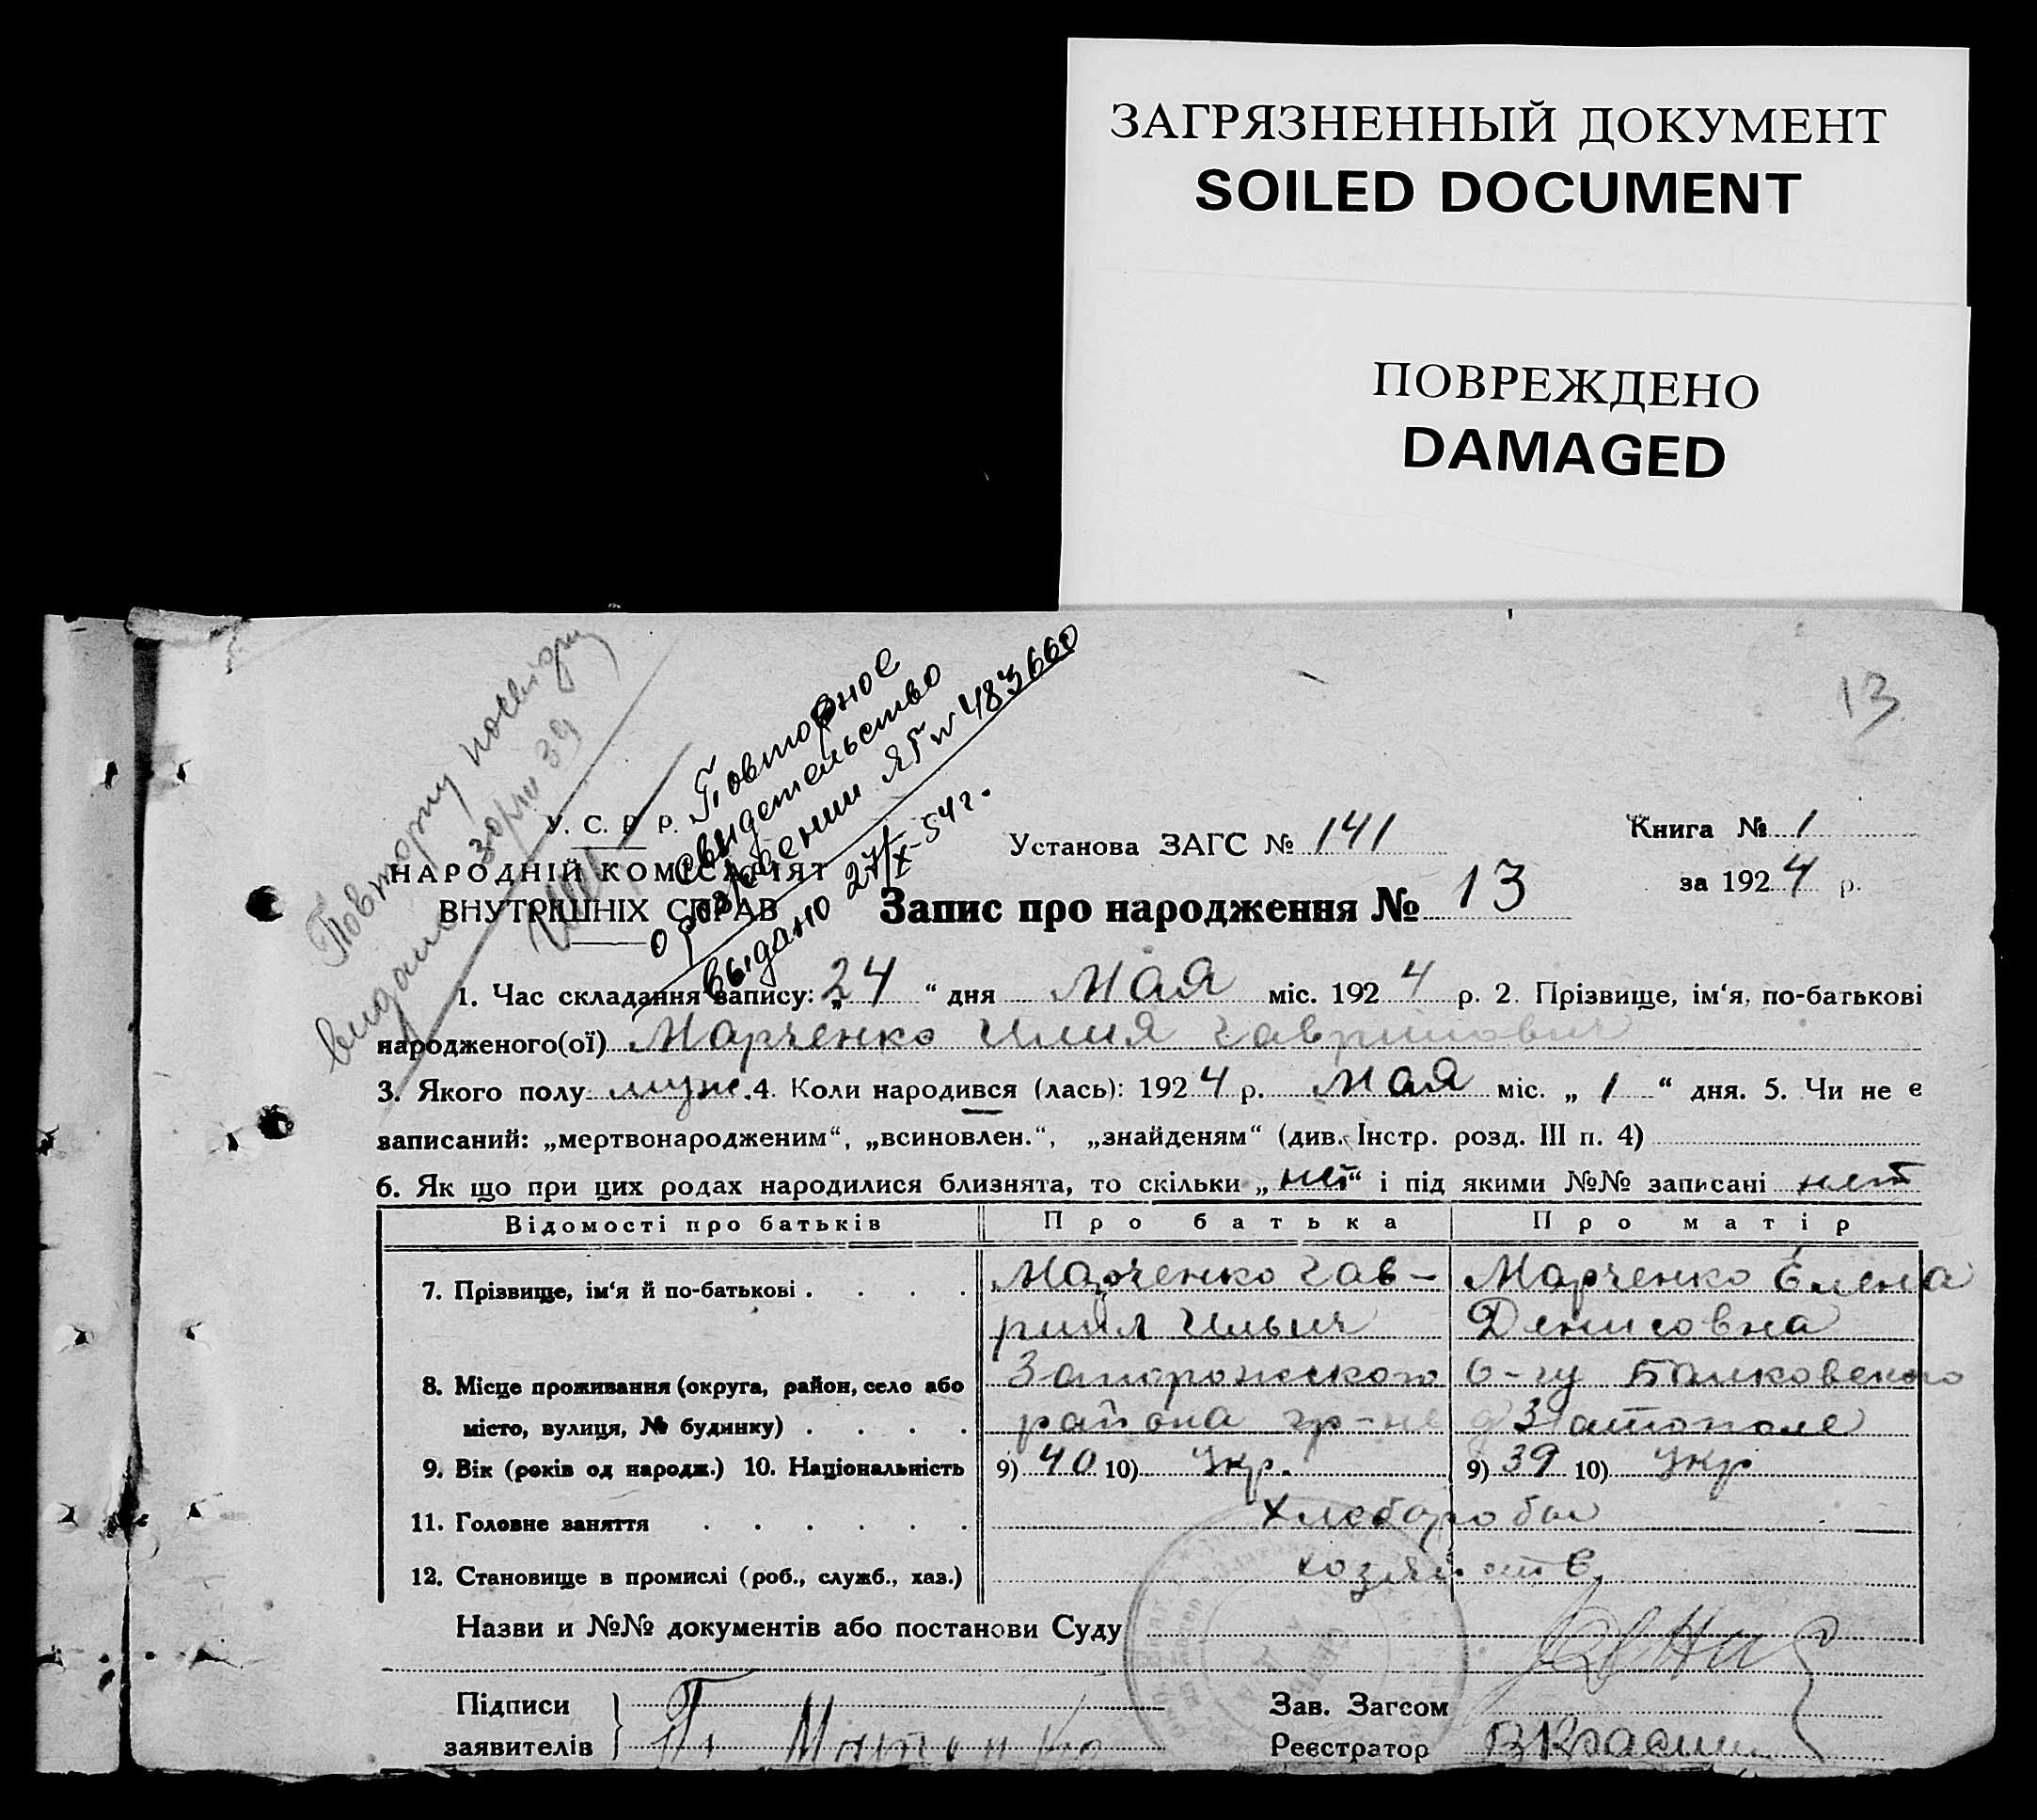 ЗАГРЯЗНЕННЫЙ ДОКУМЕНТ
SOILED DOCUMENT
ПОВРЕЖДЕНО
DAMAGED
13
Повторну посвідку
видано 39
Повторное
свидетельство
о рождении ЯГ № 483660
выдано 27/X-54 г.
У. С. Р. Р.
НАРОДНІЙ КОМІСАРІЯТ
ВНУТРІШНІХ СПРАВ
Установа ЗАГС № 141
Книга № 1
за 1924 р.
Запис про народження № 13
1. Час складання запису: „ 24 “ дня Мая міс. 1924 р. 2. Прізвище, ім‘я, по-батькові
народженого(ої) Марченко Илия Гаврилович
3. Якого полу муж. 4. Коли народився (лась): 1924 р. Мая міс. „ 1 “ дня. 5. Чи не є
записаний: „мертвонародженим“, „всиновлен.“, „знайденям“ (див. Інстр. розд. III п. 4)
6. Як що при цих родах народилися близнята, то скільки „ нет “ і під якими №№ записані нет
Відомості про батьків Про батька Про матір
7. Прізвище, ім‘я й по-батькові . . . . Марченко Гав- Марченко Елена
риил Ильич Денисовна
8. Місце проживання (округа, район, село або Запорожского о-гу Балковского
місто, вулиця, № будинку) . . . . района гр-не
9. Вік (років од народж.) 10. Національність 9) 40 10) Укр. 9) 39 10) Укр
11. Головне заняття . . . . . . Хлеборобы
12. Становище в промислі (роб., служб., хаз.)
Назви и №№ документів або постанови Суду
Підписи
заявителів
Зав. Загсом
Реєстратор